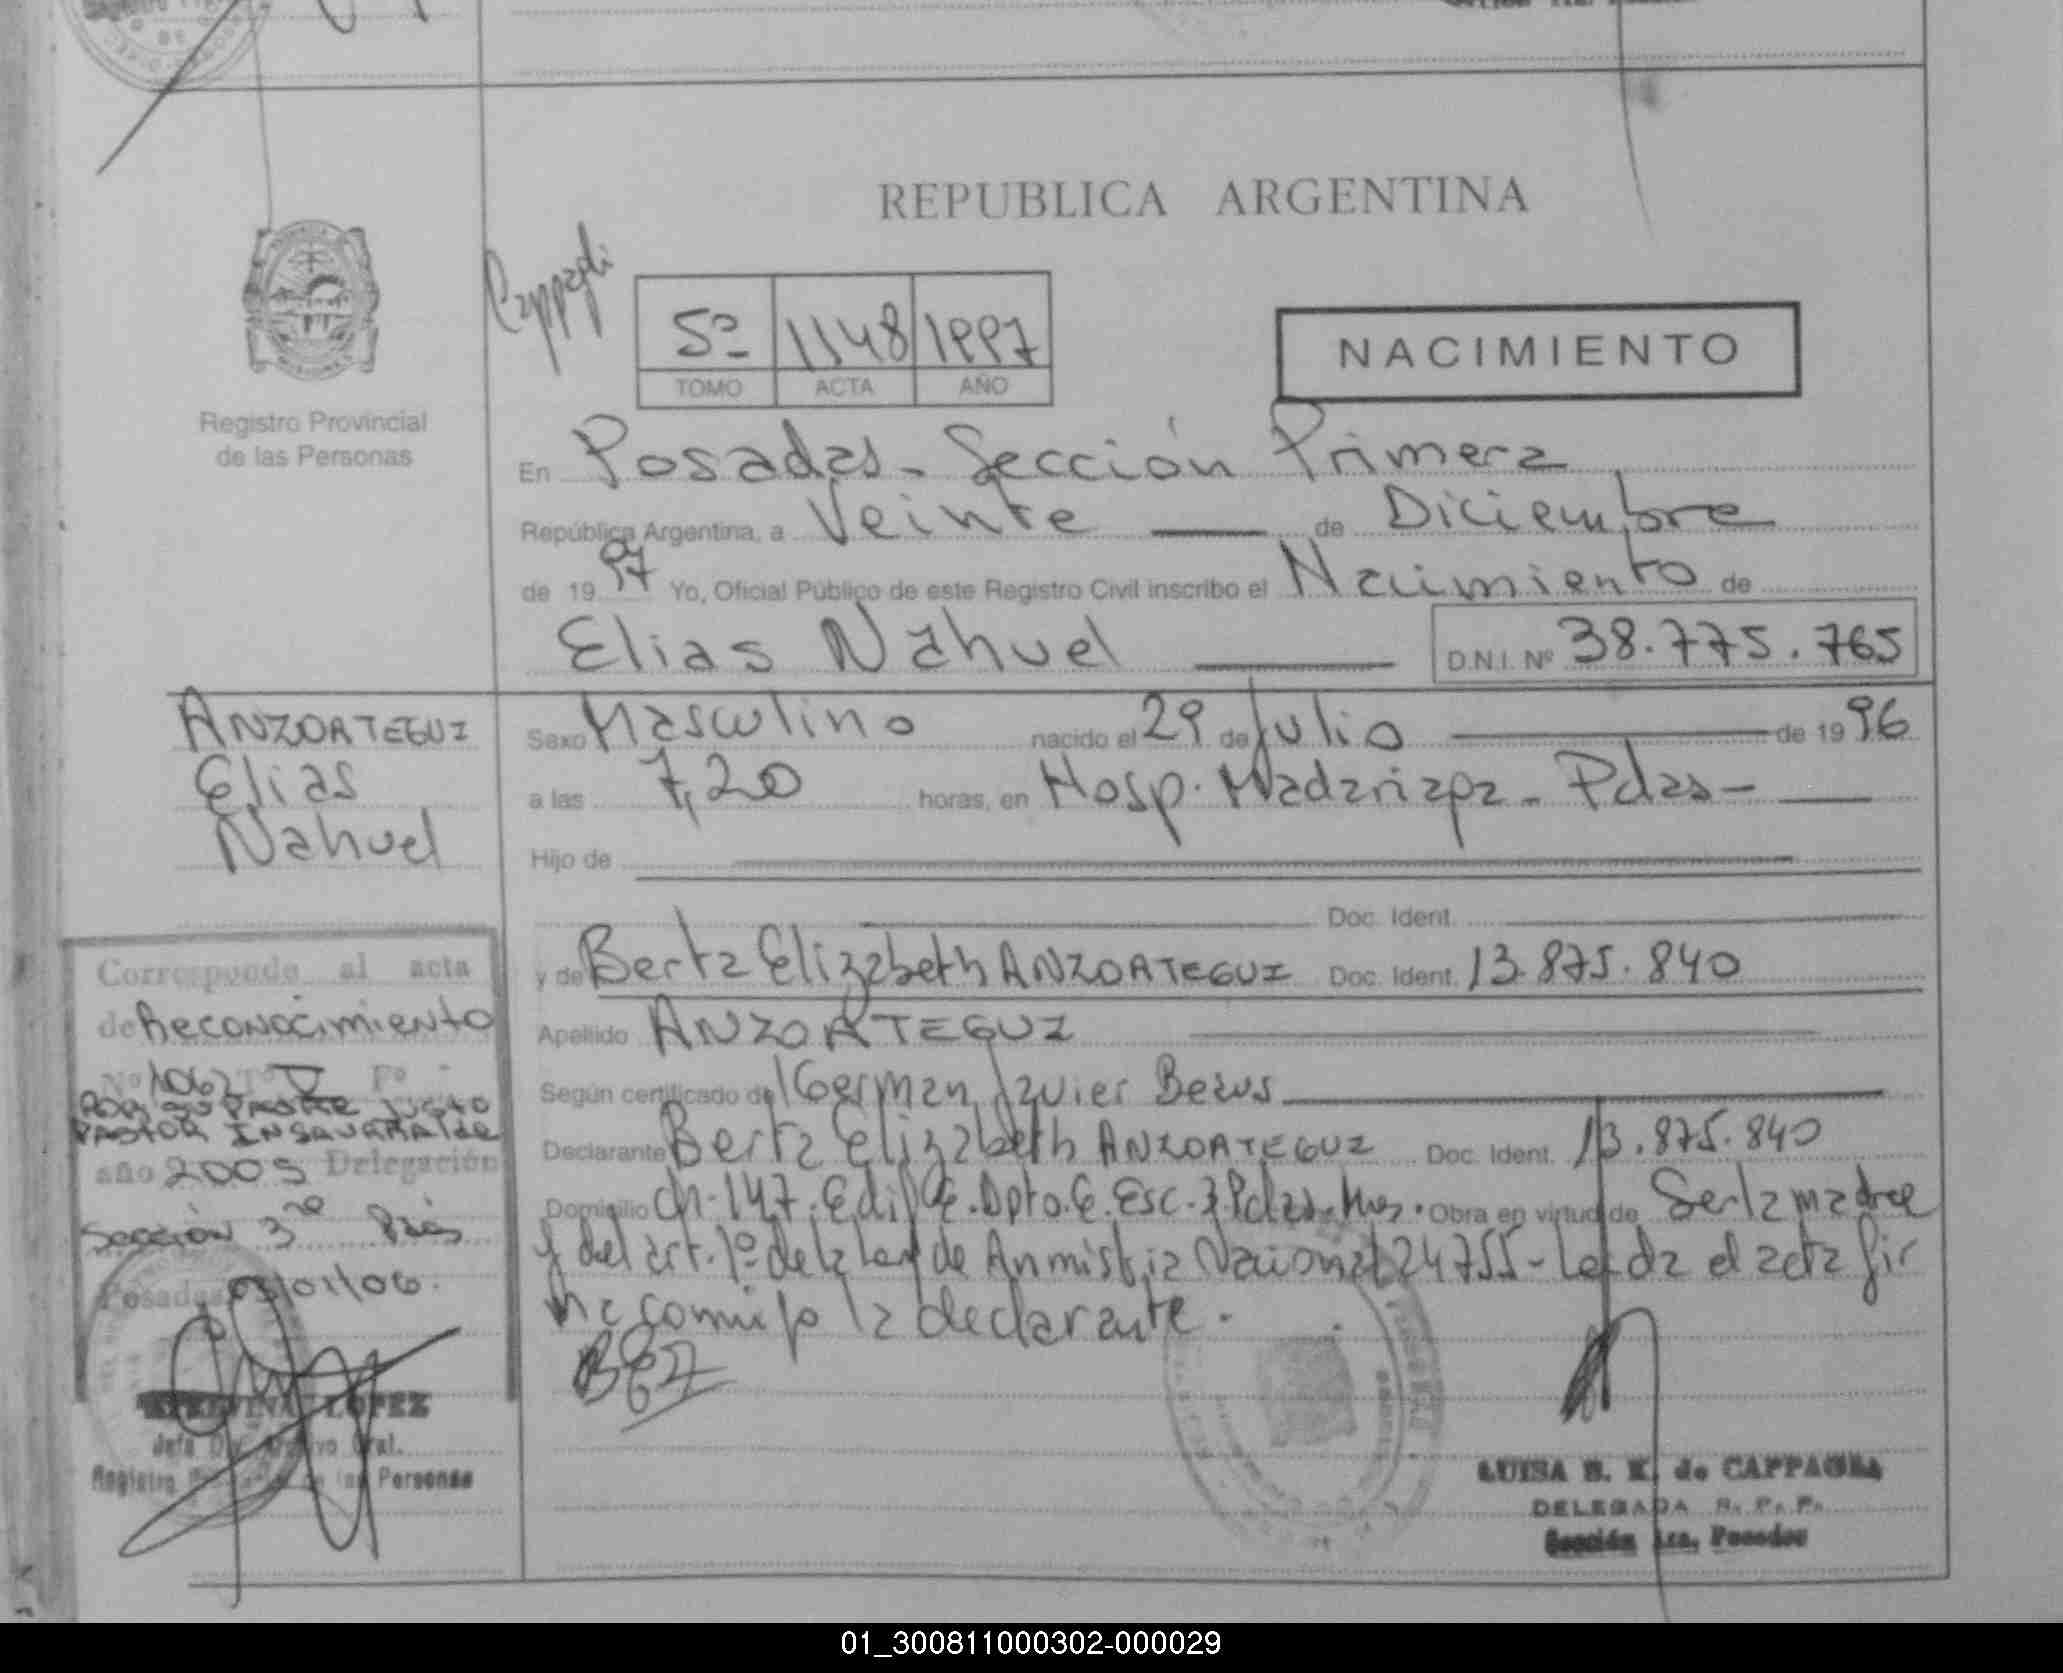 REPUBLICA ARGENTINA
Cappagli
5º 1148 1997
TOMO ACTA AÑO
NACIMIENTO
Registro Provincial
de las Personas
En Posadas - Sección Primera
República Argentina, a Veinte de Diciembre
de 19 97 Yo, Oficial Público de este Registro Civil inscribo el Nacimiento de
Elias Nahuel D.N.I. Nº 38.775.765
ANZOATEGUI
Elias
Nahuel
Sexo Masculino nacido el 29 de Julio de 19 96
a las 7,20 horas, en Hosp. Madariaga - Pdas -
Hijo de
Doc. Ident.
y de Berta Elizabeth ANZOATEGUI Doc. Ident. 13.875.840
Apellido ANZOATEGUI
Según certificado de German Javier
Declarante Berta Elizabeth ANZOATEGUI Doc. Ident. 13.875.840
Domicilio Ch. 147. Edif. Dpto. E. Esc. Pdas. Mnes. Obra en virtud de Ser la madre
y del art. 1º de la Ley de Anmistia Nacional 24755 - Leida el acta fir
ma comigo la declarante.
BEZ
Corresponde al acta
de Reconocimiento
Nº 1062 Tº V Fº -
POR SU PADRE JUSTO
PASTOR INSAURRALDE
año 2005 Delegación
Sección 3ra Pdas
Posadas 03/01/06.
LOPEZ
Jefa Div. Archivo Gral.
Registro Provincial de las Personas
LUISA B. K. de CAPPAGLI
DELEGADA R. P. P.
Sección 1ra. Posadas
01_300811000302-000029